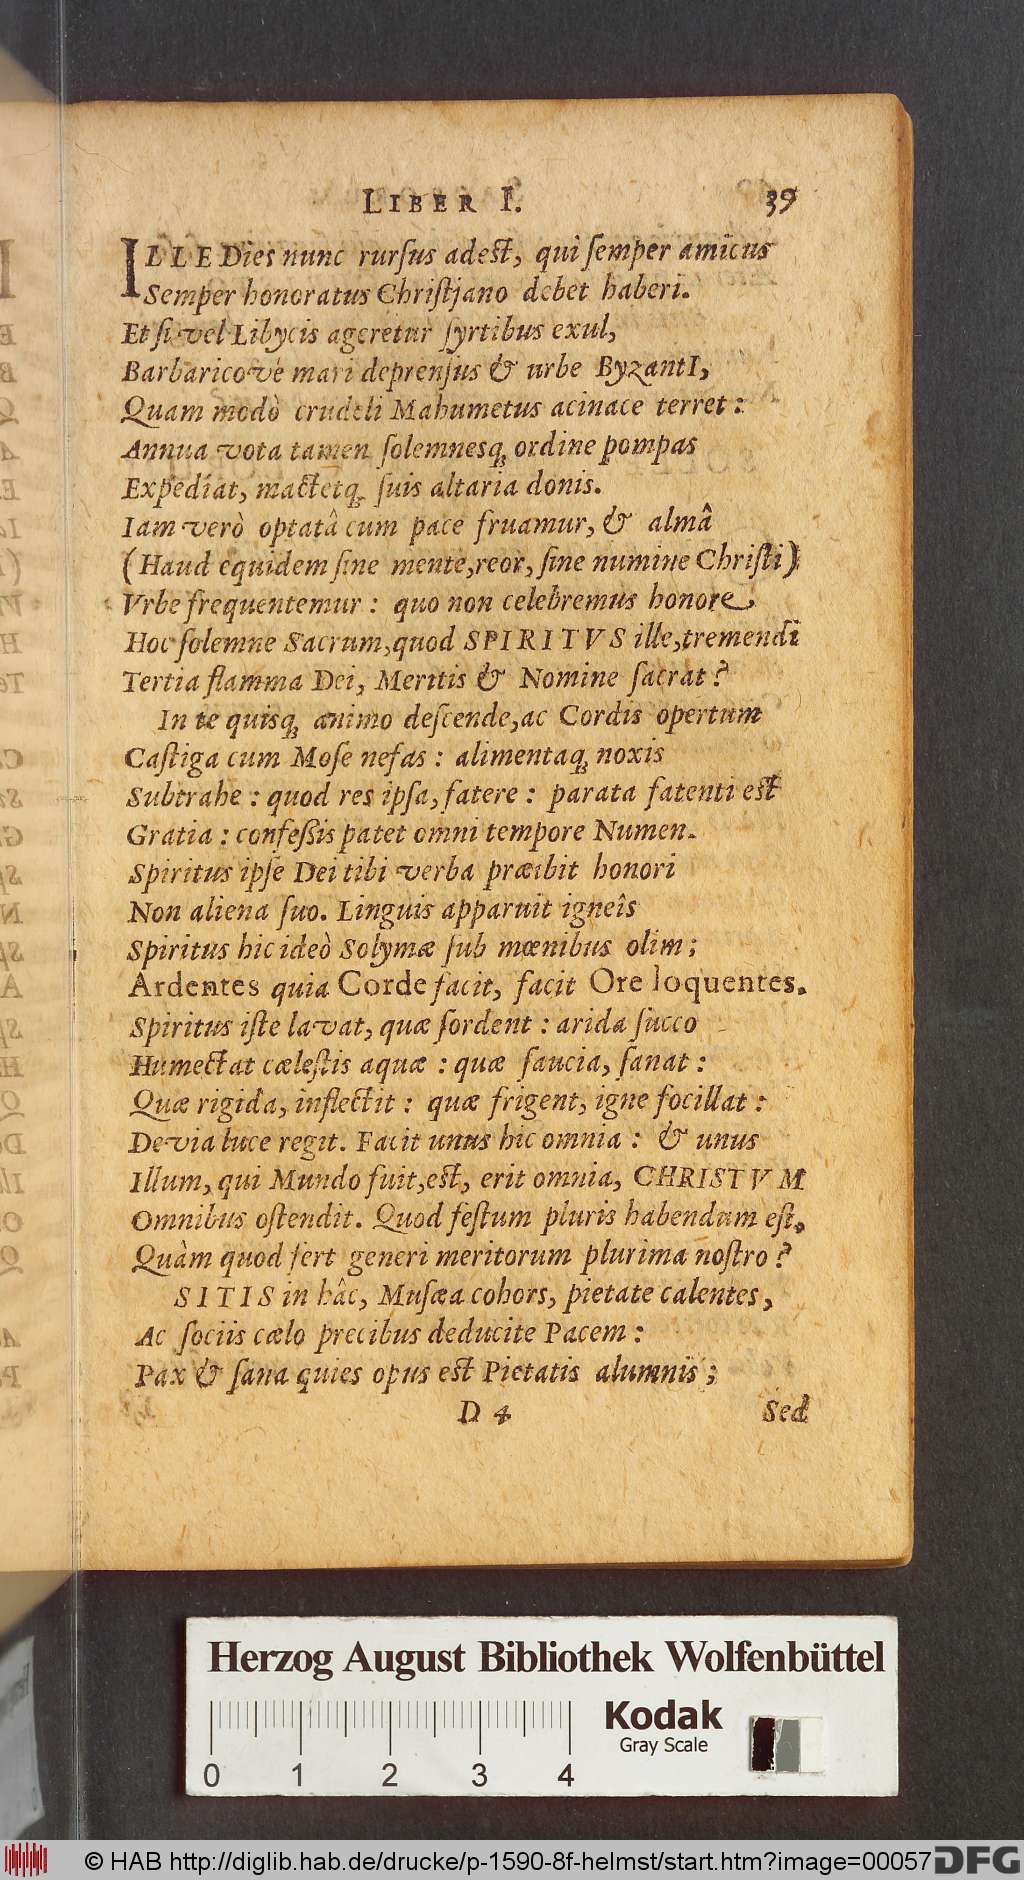 LIBER I. 39
ILLE Dies nunc rurſus adest, qui ſemper amicus
Semper honoratus Chriſtjano debet haberi.
Et ſi vel Libycis ageretur ſyrtibus exul,
Barbaricové mari deprenſus & urbe ByzantI,
Quam modò crudeli Mahumetus acinace terret:
Annua vota tamen ſolemnesq; ordine pompas
Expediat, mactetq; ſuis altaria donis.
Iam verò optatâ cum pace fruamur, & almâ
(Haud equidem ſine mente, reor, ſine numine Chriſti)
Vrbe frequentemur: quo non celebremus honore
Hoc ſolemne Sacrum, quod SPIRITVS ille, tremendi
Tertia flamma Dei, Meritis & Nomine ſacrat?
In te quisq; animo deſcende, ac Cordis opertum
Caſtiga cum Moſe nefas: alimentaq; noxis
Subtrahe: quod res ipſa, fatere: parata fatenti est
Gratia: confeßis patet omni tempore Numen.
Spiritus ipſe Dei tibi verba præibit honori
Non aliena ſuo. Linguis apparuit igneîs
Spiritus hic ideò Solymæ ſub mœnibus olim;
Ardentes quia Corde facit, facit Ore loquentes.
Spiritus iſte lavat, quæ ſordent: arida ſucco
Humectat cæleſtis aquæ: quæ ſaucia, ſanat:
Quæ rigida, inflectit: quæ frigent, igne focillat:
Devia luce regit. Facit unus hic omnia: & unus
Illum, qui Mundo fuit, est, erit omnia, CHRISTVM
Omnibus oſtendit. Quod feſtum pluris habendum eſt,
Quàm quod fert generi meritorum plurima noſtro?
SITIS in hâc, Muſæa cohors, pietate calentes,
Ac ſociis cælo precibus deducite Pacem:
Pax & ſana quies opus est Pietatis alumnis;
D 4 Sed
Herzog August Bibliothek Wolfenbüttel
Kodak
Gray Scale
0 1 2 3 4
© HAB http://diglib.hab.de/drucke/p-1590-8f-helmst/start.htm?image=00057 DFG